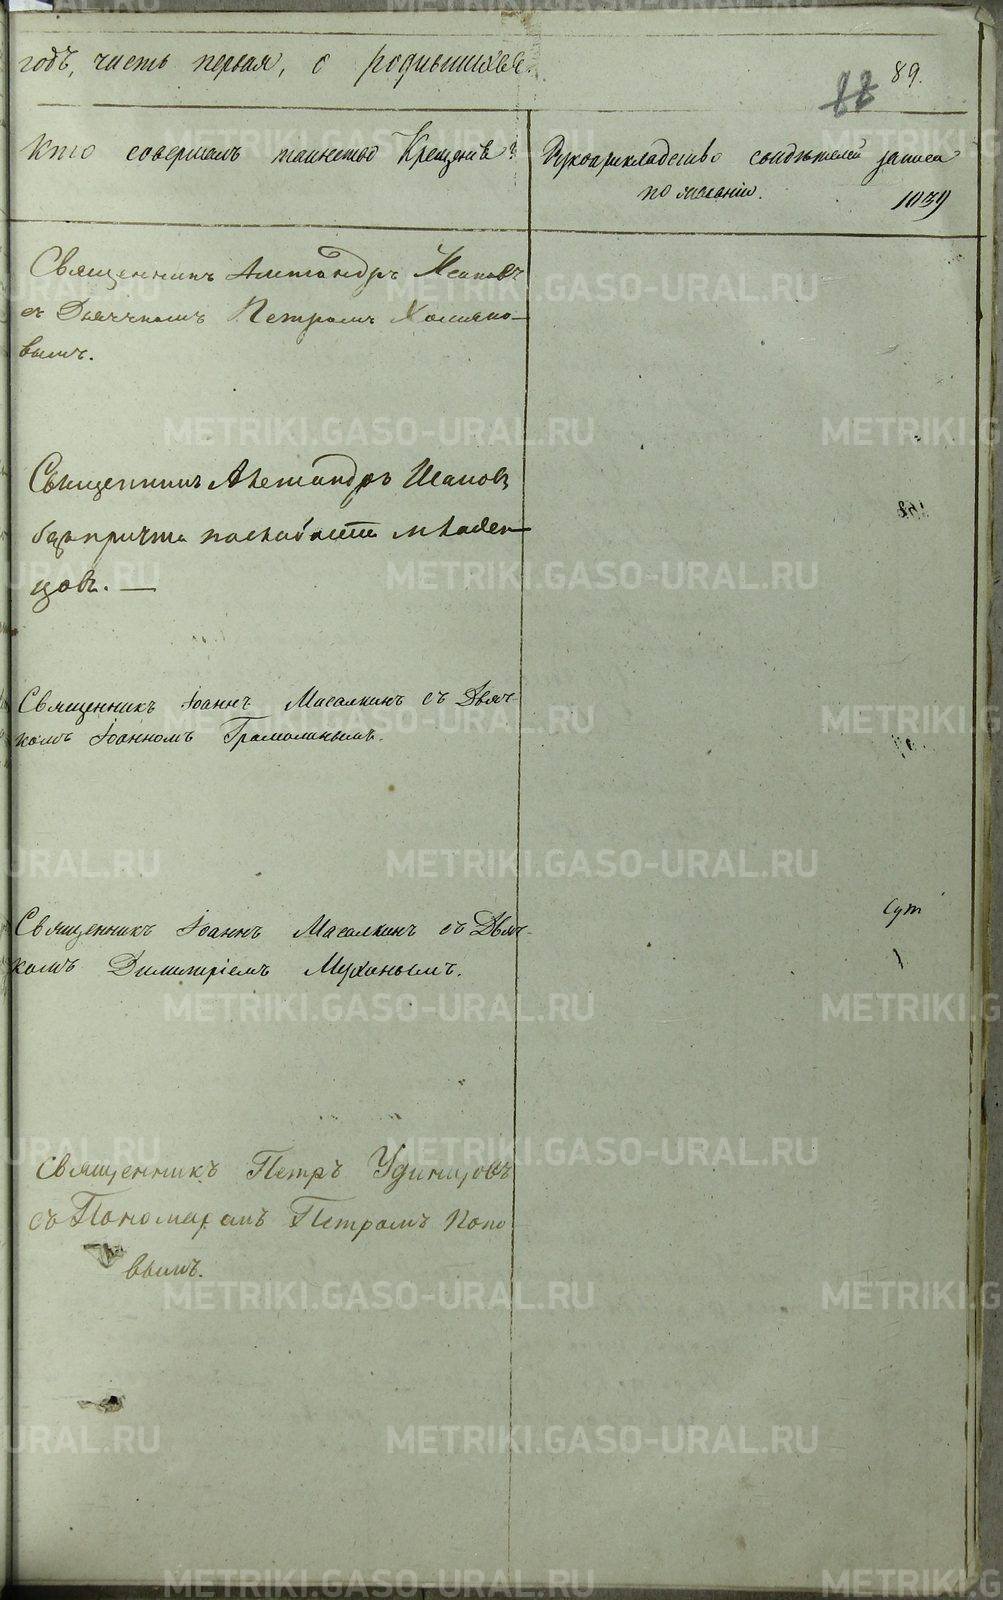 годъ, часть первая, о родившихся.
89.
88
Кто совершалъ таинство Крещенія?
Рукоприкладство свидѣтелей записи
по желанію.
1039
Священникъ Александръ Исаковъ
съ Дьячкомъ Петромъ Хомяко-
вымъ.
Священникъ Александръ Исаковъ
безъ причта по слабости младен-
цовъ. —
Священникъ Іоаннъ Масалкинъ съ Дьяч-
комъ Іоанномъ Грамолинымъ.
Священникъ Іоаннъ Масалкинъ съ Дьяч-
комъ Димитріемъ Мухинымъ.
Священникъ Петръ Удинцовъ
съ Пономаремъ Петромъ Попо-
вымъ.
METRIKI.GASO-URAL.RU